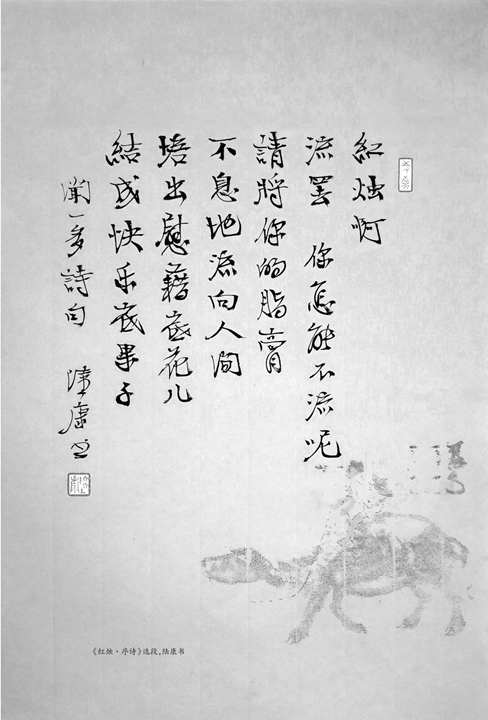 紅烛啊
流罢 你怎能不流呢
請將你的脂膏
不息地流向人间
培出慰藉底花儿
結成快乐底果子
聞一多詩句 陸康书
《红烛·序诗》选段,陆康书